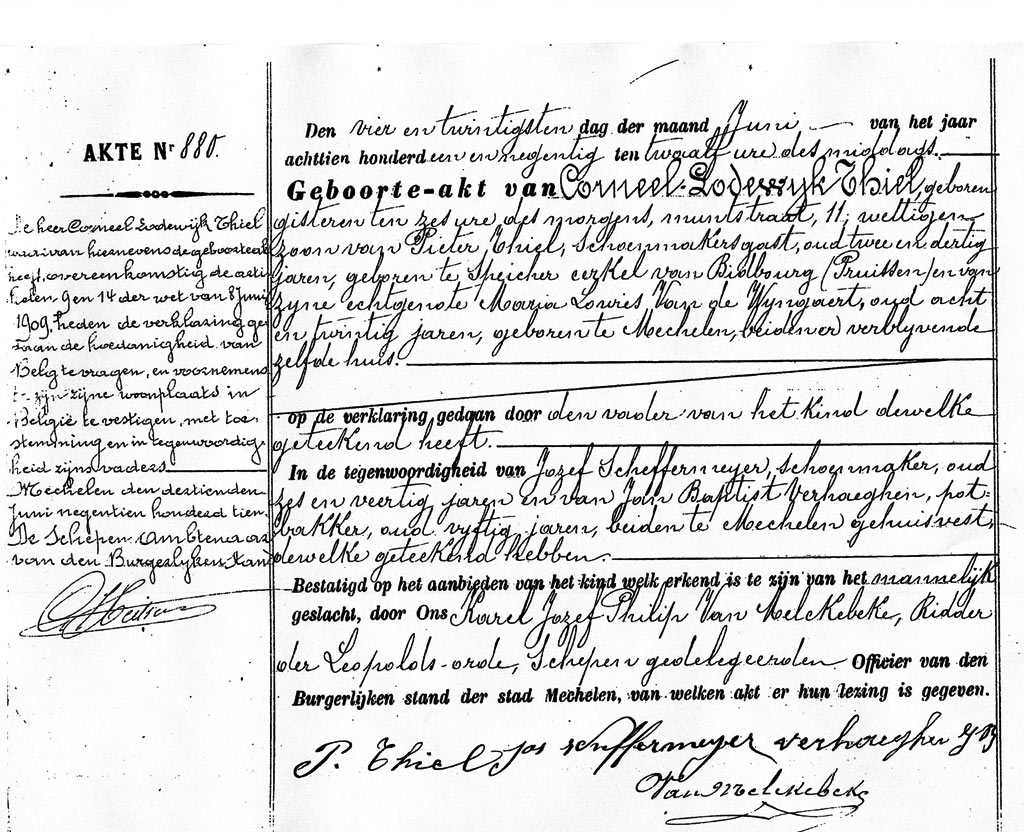 AKTE Nr 880.
De heer Corneel Lodewijk Thiel
waarvan hiernevens de geboorteakt
heeft, overeenkomstig de arti-
kelen 9 en 14 der wet van 8 Juni
1909, heden de verklaring ge-
daan de hoedanigheid van
Belg te vragen, en voornemens
te zijn zijne woonplaats in
België te vestigen, met toe-
stemming en in tegenwoordig-
heid zijns vaders.
Mechelen den destienden
Juni negentien honderd tien
De Schepen-Ambtenaar
van den Burgerlyken Stand
Den vier en twintigsten dag der maand Juni van het jaar
achttien honderd een en negentig ten twaalf ure des middags.
Geboorte-akt van Corneel-Lodewyk Thiel, geboren
gisteren ten zes ure des morgens, muntstraat, 11, wettigen
zoon van Pieter Thiel, Schoenmakersgast, oud twee en dertig
jaren, geboren te Speicher cirkel van Bidbourg (Pruissen) en van
zyne echtgenote Maria Lowies Van de Wyngaert, oud acht
en twintig jaren, geboren te Mechelen, beiden er verblyvende
zelfde huis.
op de verklaring, gedaan door den vader van het kind dewelke
geteekend heeft.
In de tegenwoordigheid van Jozef Scheffermeyer, schoenmaker, oud
zes en veertig jaren en van Jan Baptist Verhaeghen, pot-
bakker, oud vyftig jaren, beiden te Mechelen gehuisvest,
dewelke geteekend hebben.
Bestatigd op het aanbieden van het kind welk erkend is te zijn van het mannelijk
geslacht, door Ons Karel Jozef Philip Van Melckebeke, Ridder
der Leopolds-orde, Schepen gedelegeerden Officier van den
Burgerlijken stand der stad Mechelen, van welken akt er hun lezing is gegeven.
P. Thiel Jos scheffermeyer verhaeghen J B
Van Melckebeke